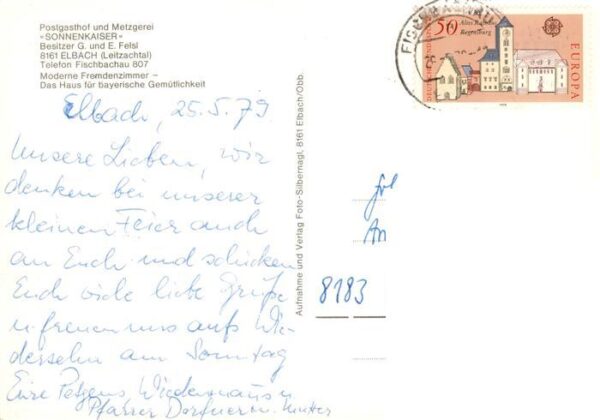 Postgasthof und Metzgerei
»SONNENKAISER«
Besitzer G. und E. Felsl
8161 ELBACH (Leitzachtal)
Telefon Fischbachau 807
Moderne Fremdenzimmer –
Das Haus für bayerische Gemütlichkeit
Elbach, 25.5.79
Unsere Lieben, wir
denken bei unserer
kleinen Feier auch
an Euch und schicken
Euch viele liebe Grüße
u. freuen uns aufs Wie-
dersehn am Sonntag
Eure
Pfarrer Dorfner u. Mutter
Aufnahme und Verlag Foto-Silbernagl, 8161 Elbach/Obb.
50
Altes Rathaus
Regensburg
DEUTSCHE BUNDESPOST
EUROPA
CEPT
1978
Frl
An
8183